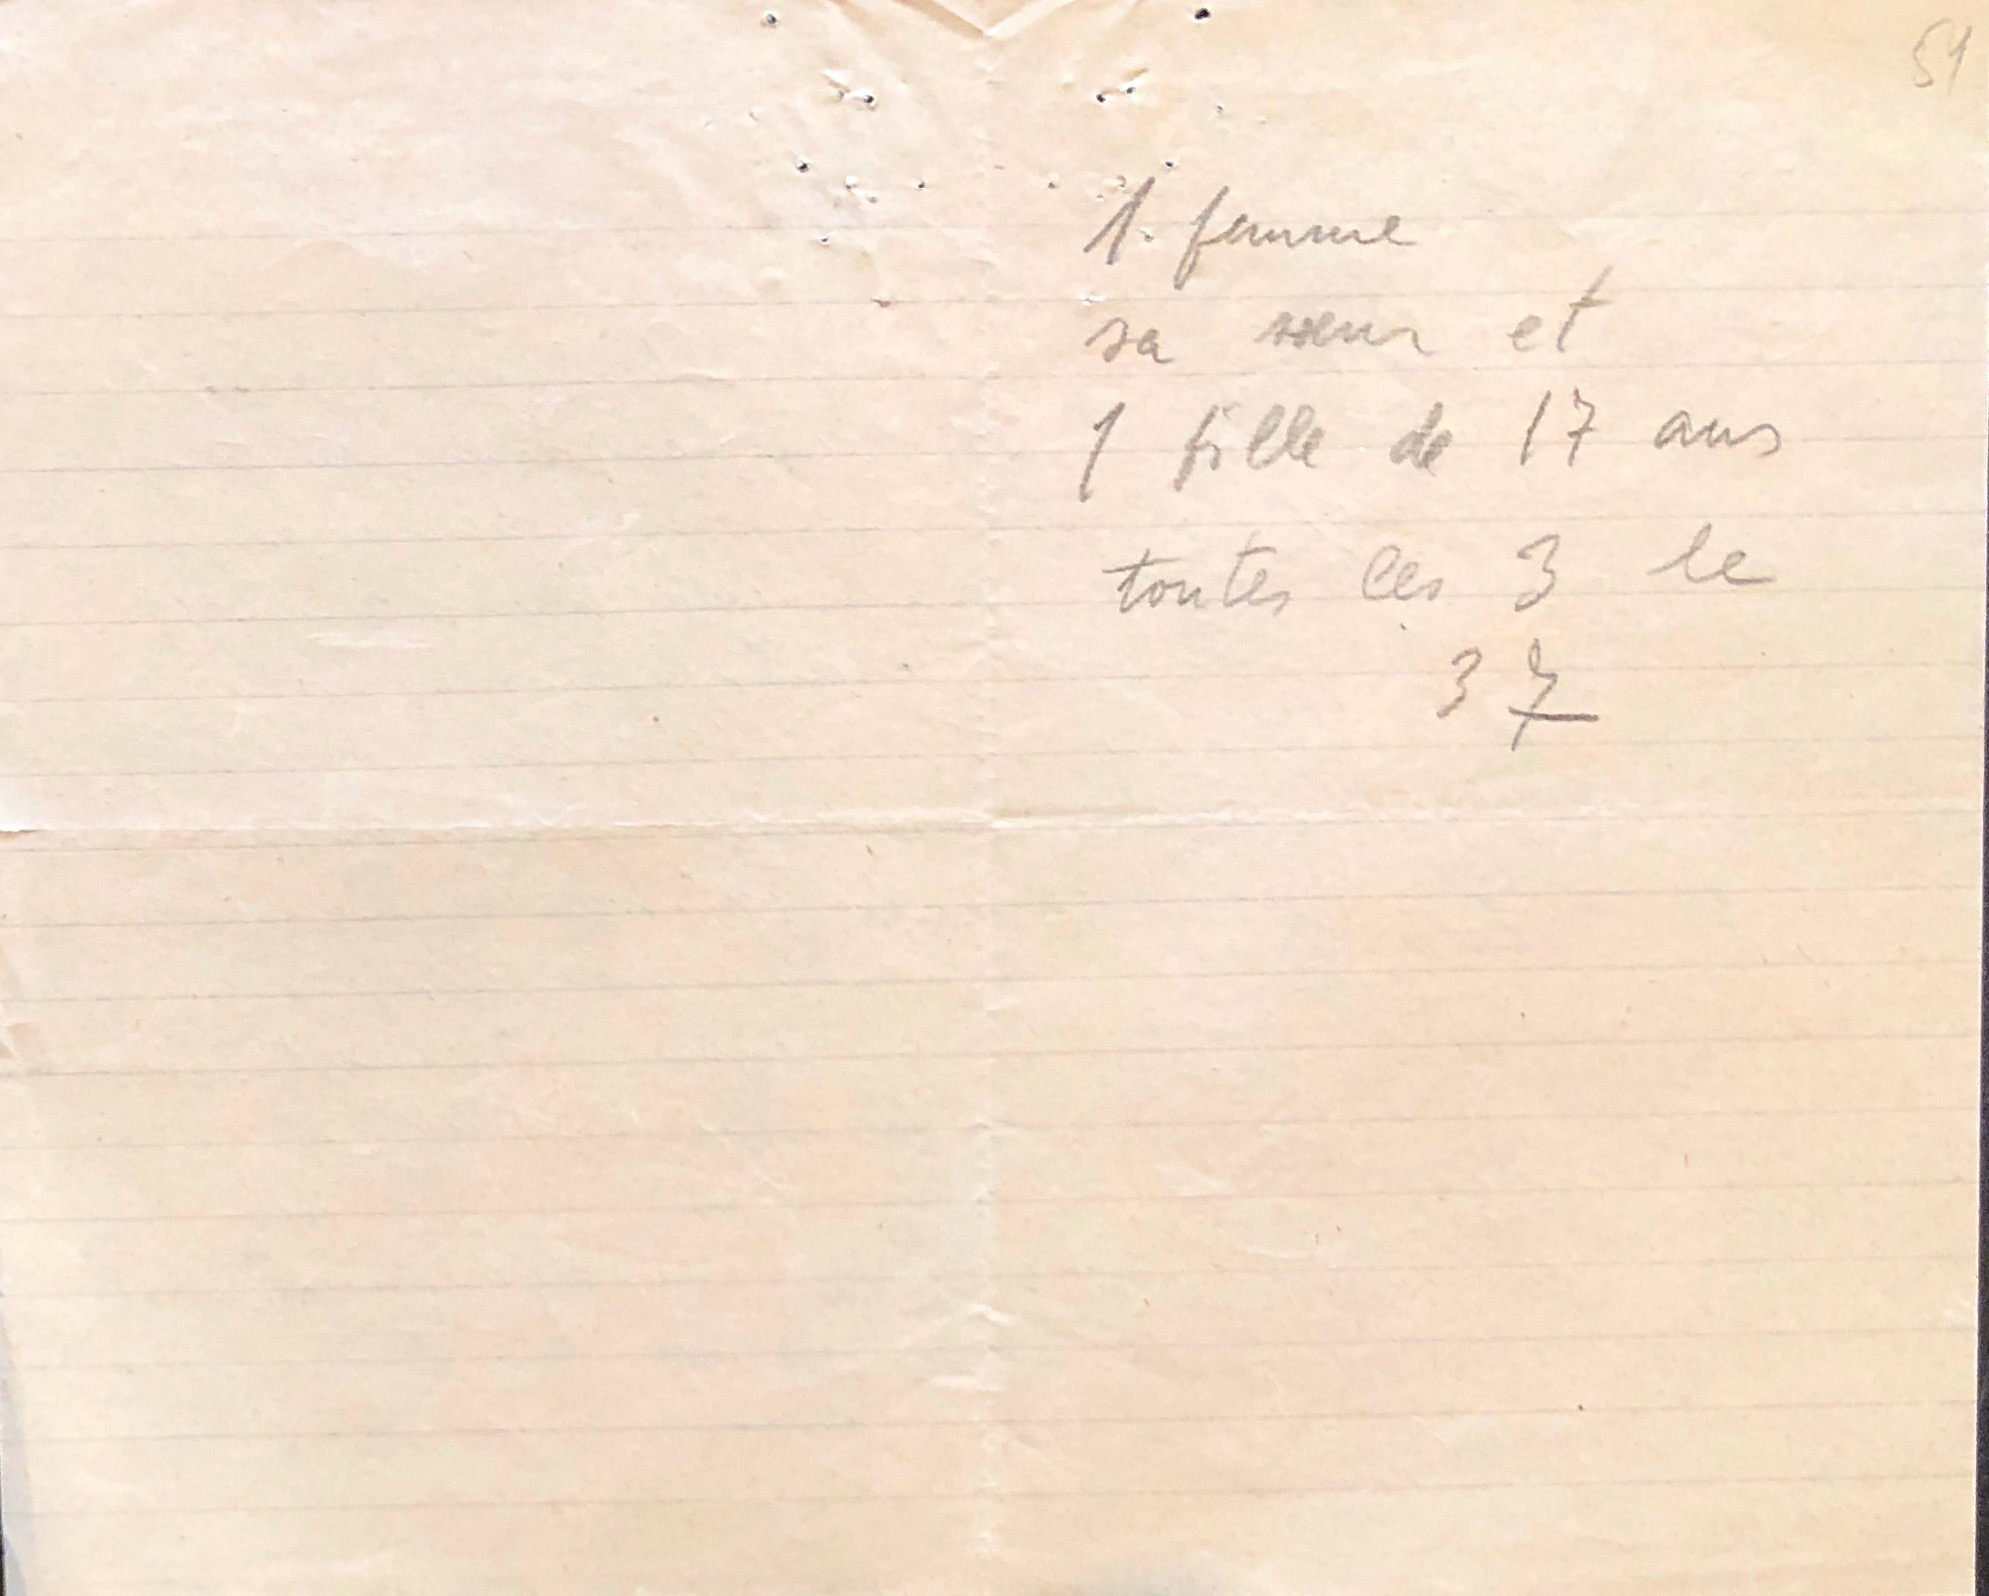 51
1. femme
sa sœur et
1 fille de 17 ans
toutes les 3 le
37